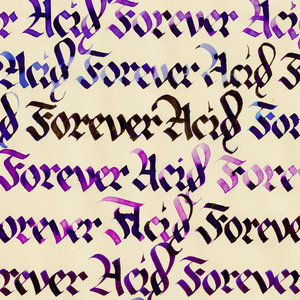 r Forever Acid Forever Aci
Acid Forever Acid F
d Forever Acid Fo
Forever Acid Forev
orever Acid Forever
rever Acid Forever